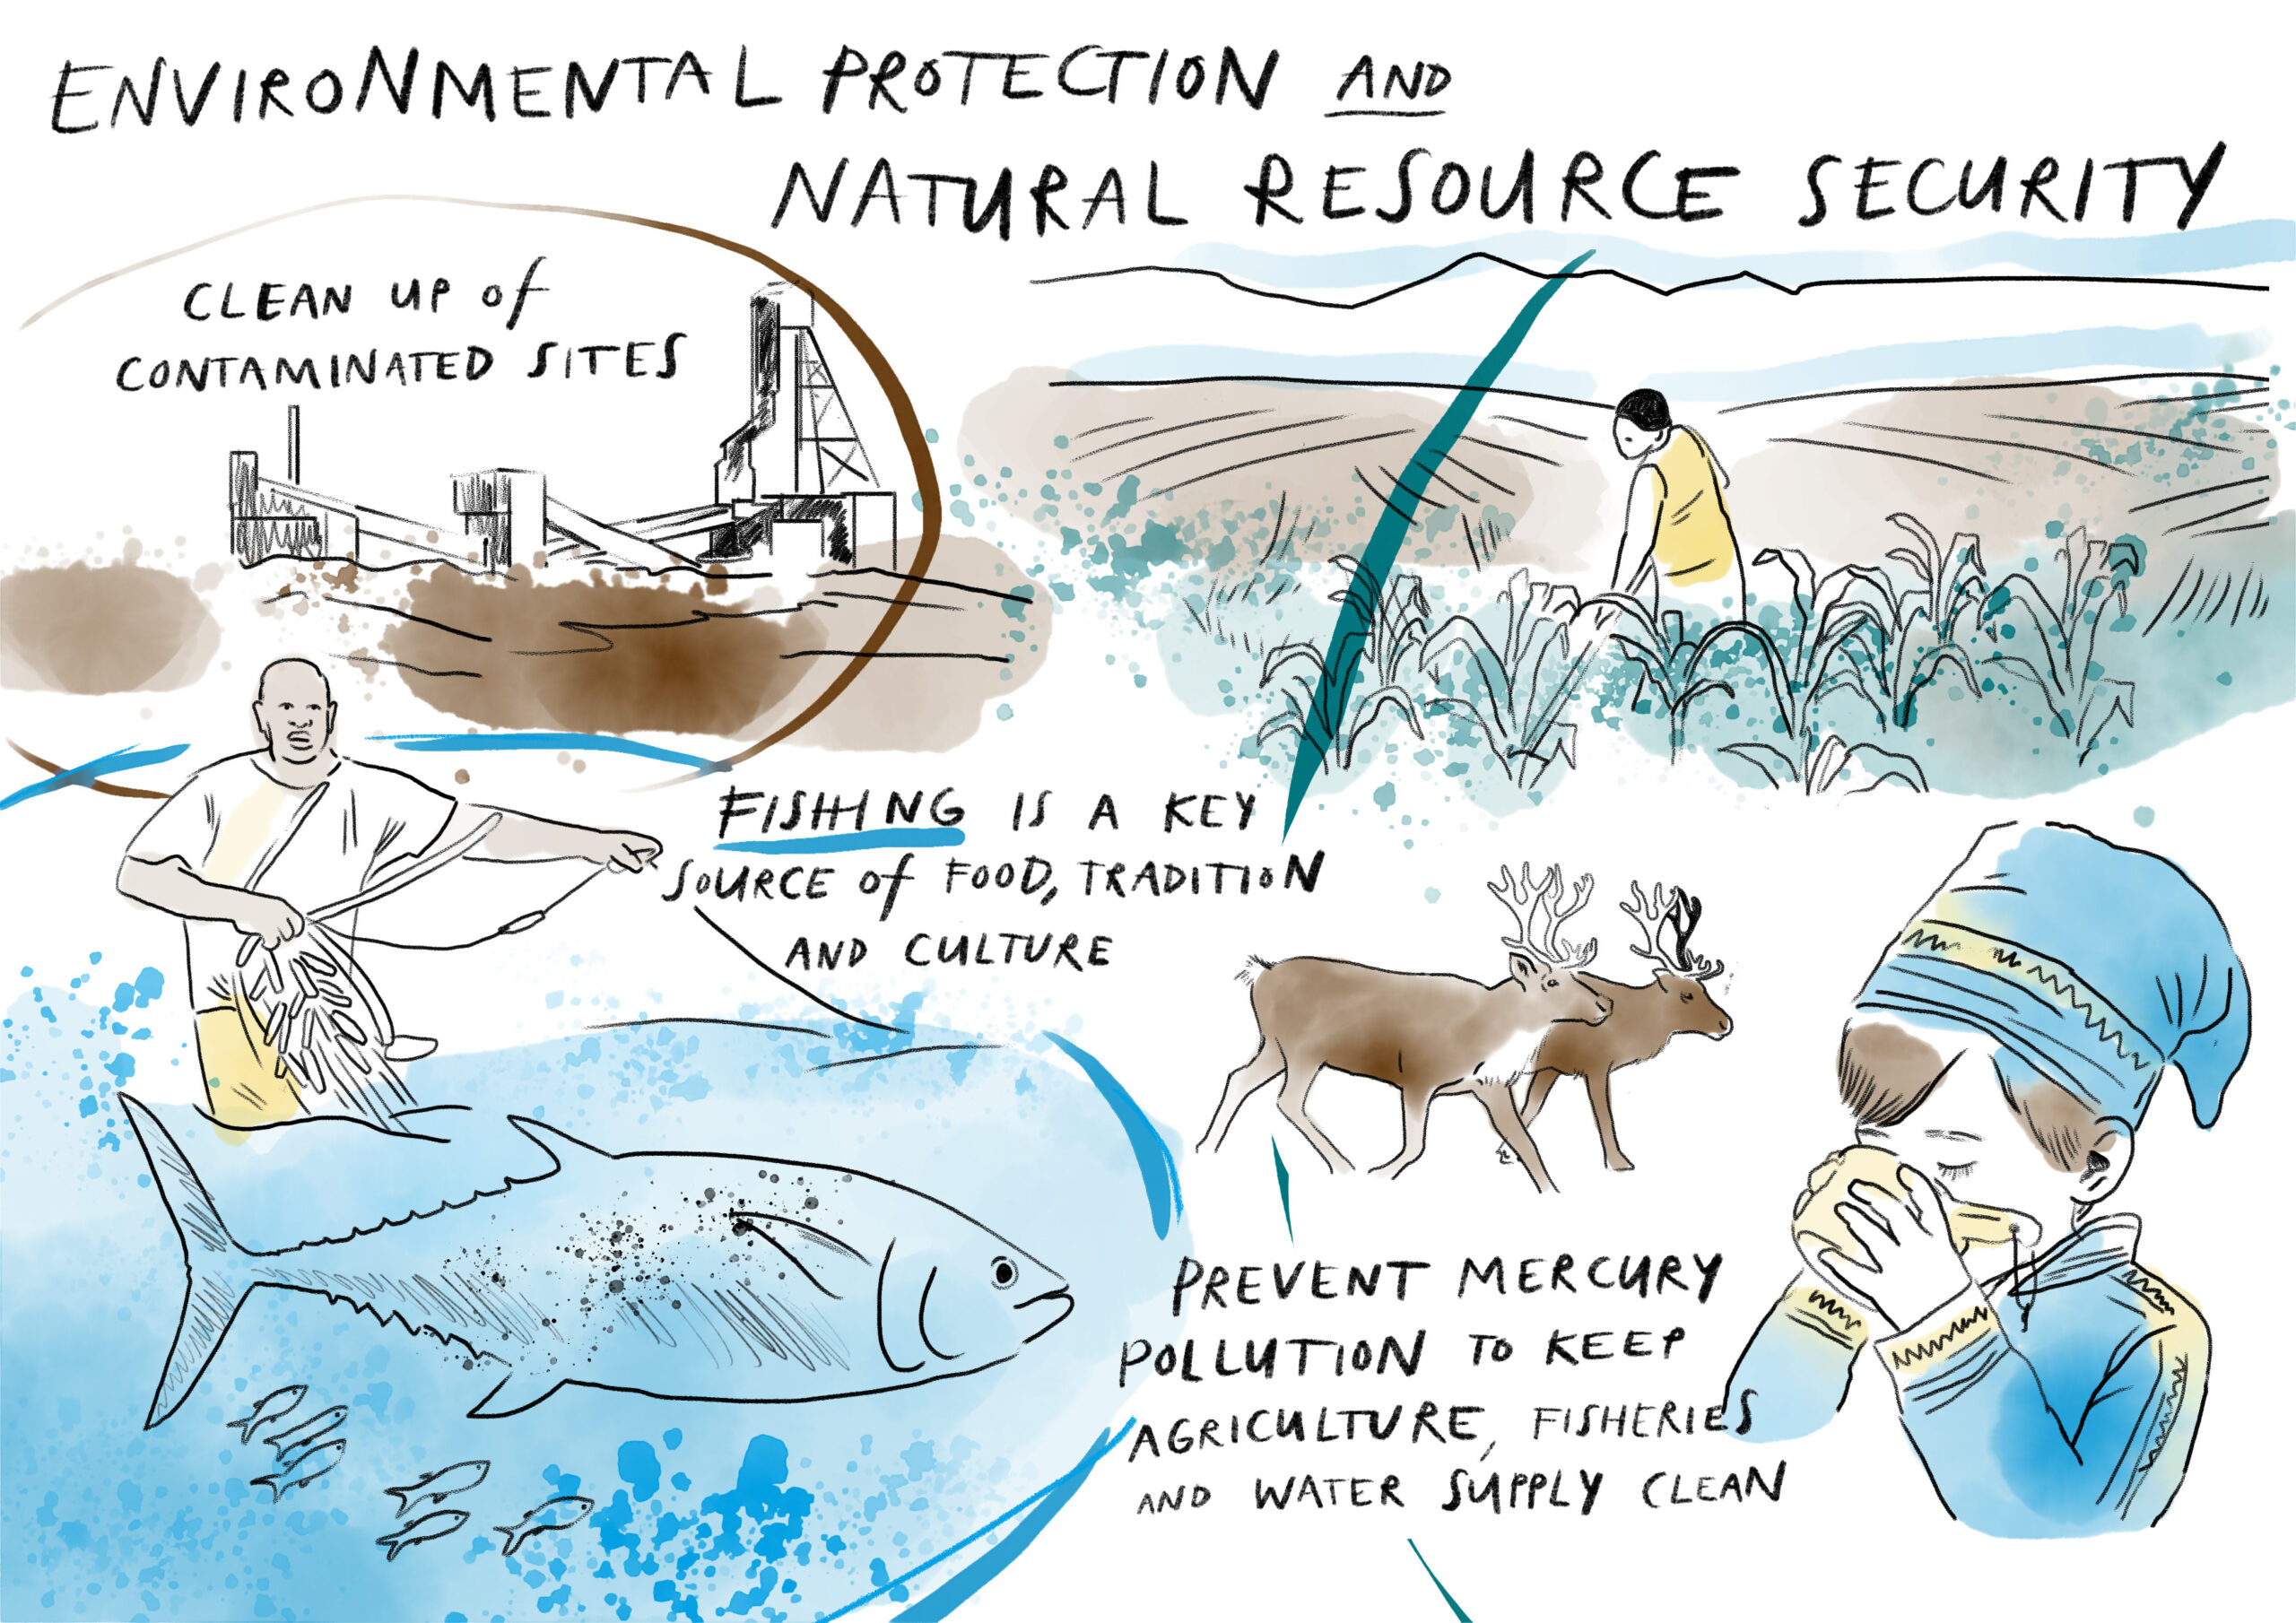 ENVIRONMENTAL PROTECTION AND
NATURAL RESOURCE SECURITY
CLEAN UP of
CONTAMINATED SITES
FISHING IS A KEY
SOURCE of FOOD, TRADITION
AND CULTURE
PREVENT MERCURY
POLLUTION TO KEEP
AGRICULTURE, FISHERIES
AND WATER SUPPLY CLEAN